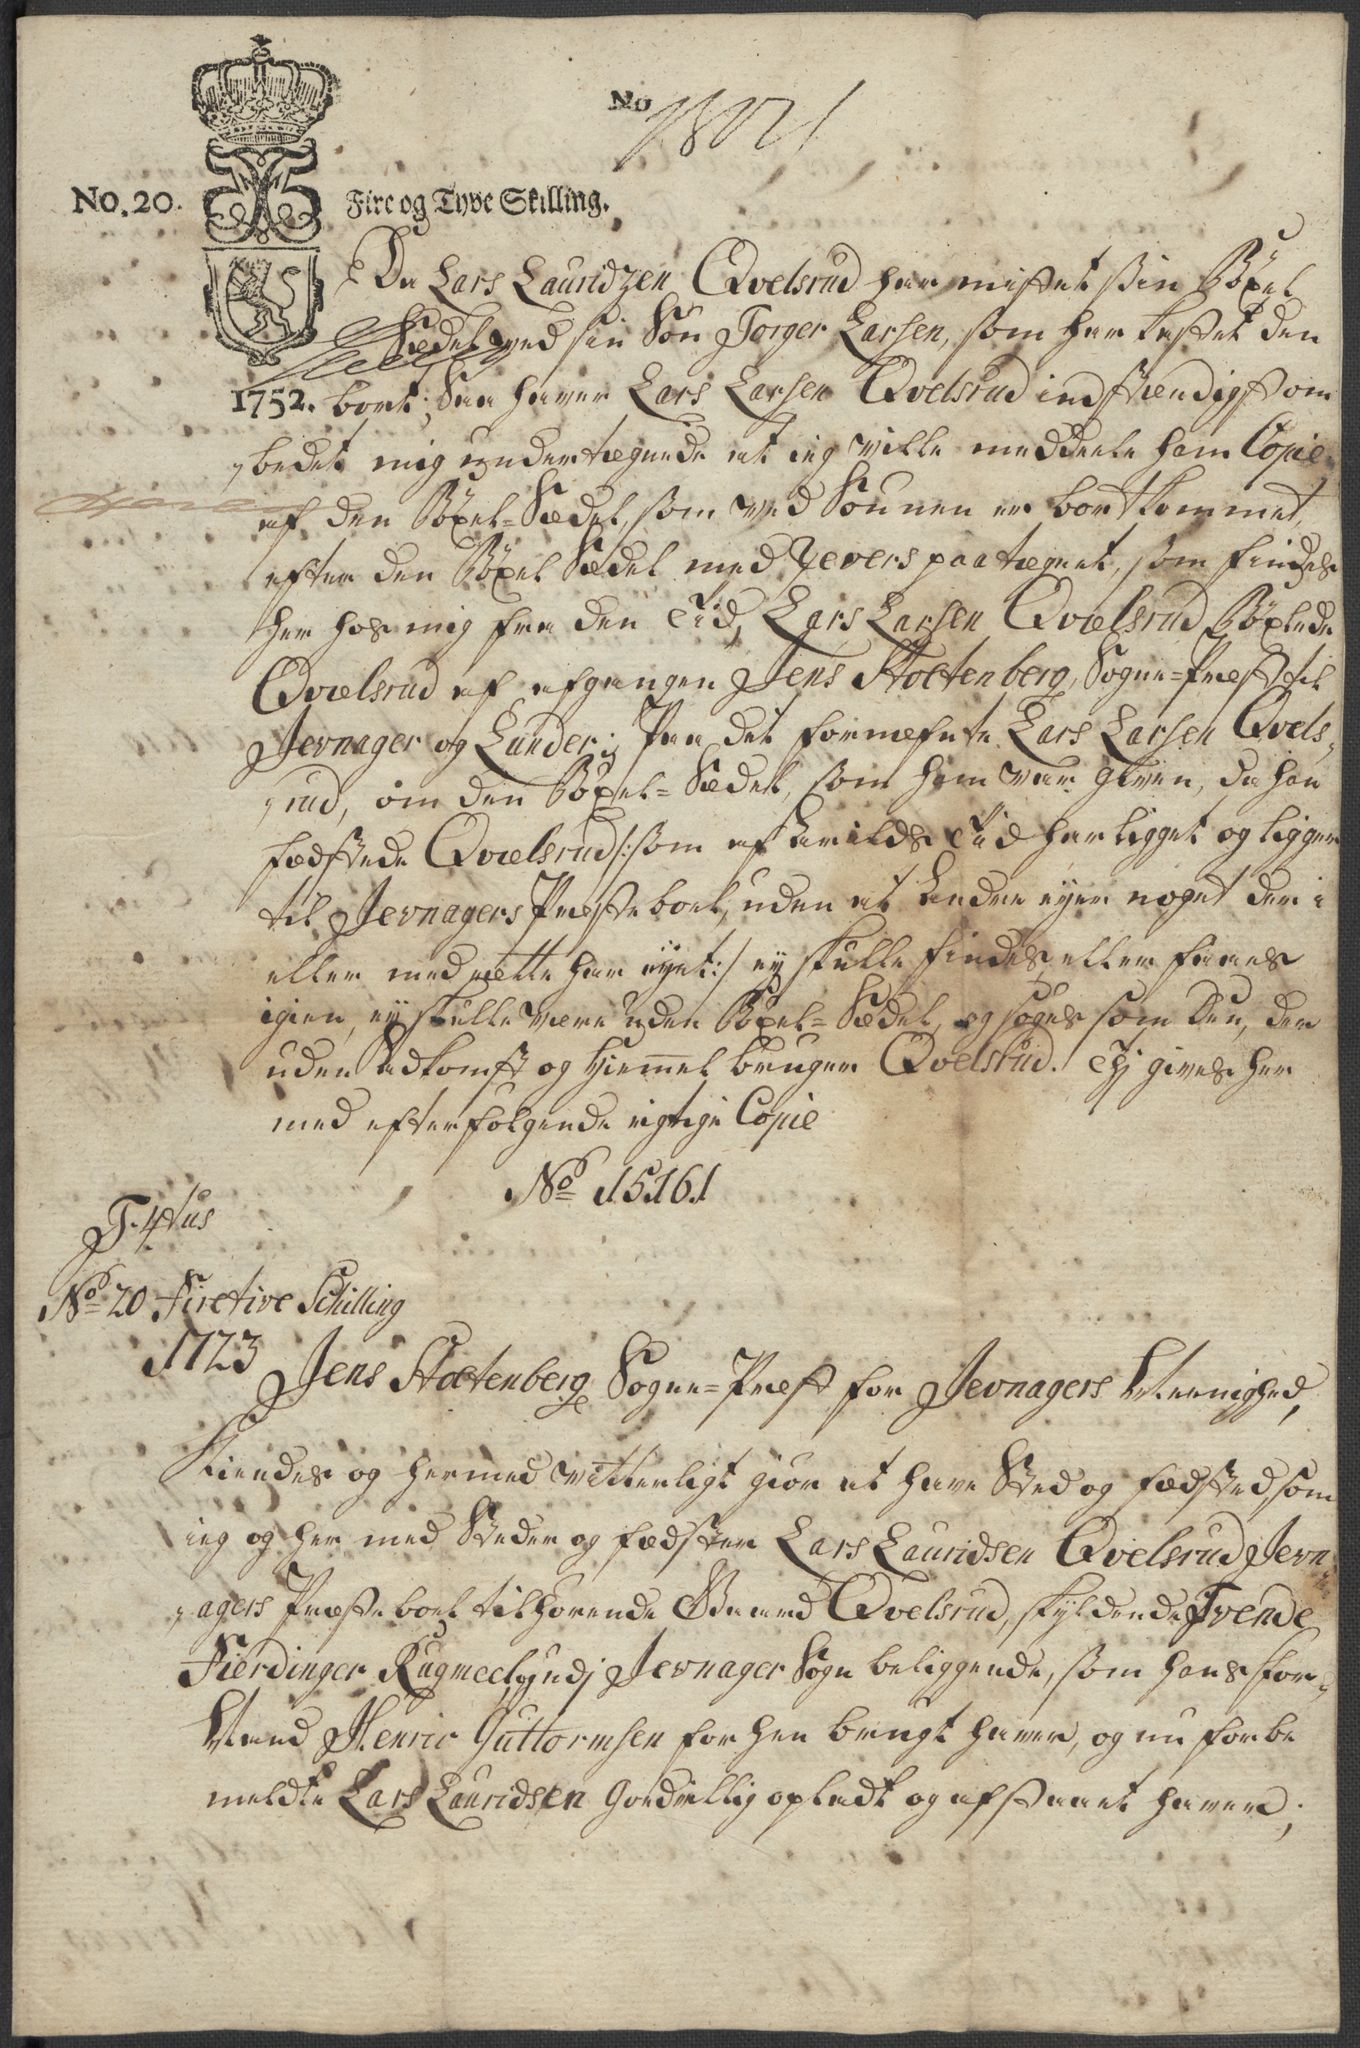 No 18021
No. 20. Fire og Tyve Skilling.
Da Lars Lauridzen Qvelsrud har mistet sin Böxel
Sædel ved sin Sön Torger Larsen, som har kastet den
1752. bort; Saa haver Lars Larsen Qvelsrud indstændigst om
bedet mig undertegnede at ieg ville meddeele ham Copie
af den Böxel-Sædel, som ved Sönnen er bortkommet,
efter den Böxel Sædel med Revers paategnet, som findes
her hos mig fra den Tid, Lars Larsen Qvælsrud Böxlede
Qvælsrud af afgangen Jens Stoetenberg, Sogne-Præst til
Jevnager og Lunder; Paa det formæfnte Lars Larsen Qvels-
rud, om den Böxel-Sædel, som ham var given, da han
fædstede Qvælsrud /: som af Arilds Tid har ligget og ligger
til Jevnagers Præsteboel, uden at Andre eyer noget der i
eller med rette har eyet :/ ey skulle findes eller faaes
igien, ey skulle være uden Böxel-Sædel, og söges som Den, der
uden Adkomst og Hiemmel bruger Qvelsrud. Thi gives her
med efterfölgende rigtige Copie
No 15161
F. 4tus
No 20 Firetive Schilling
1723 Jens Stoetenberg Sogne-Præst for Jevnagers Meenighed,
Kiendes og hermed vitterligt giör at have Sted og fædsted, som
ieg og her med Steder og fædster Lars Lauridsen Qvelsrud Jevn-
agers Præsteboel tilhörende Gaard Qvelsrud, skyldende Tvende
Fierdinger Rugmeel, udj Jevnager Sogn beliggende, som hans for-
Mand Henric Guttormsen forhen brugt haver, og nu forbe
meldte Lars Lauridsen Godvillig opladt og afstaaet haver;